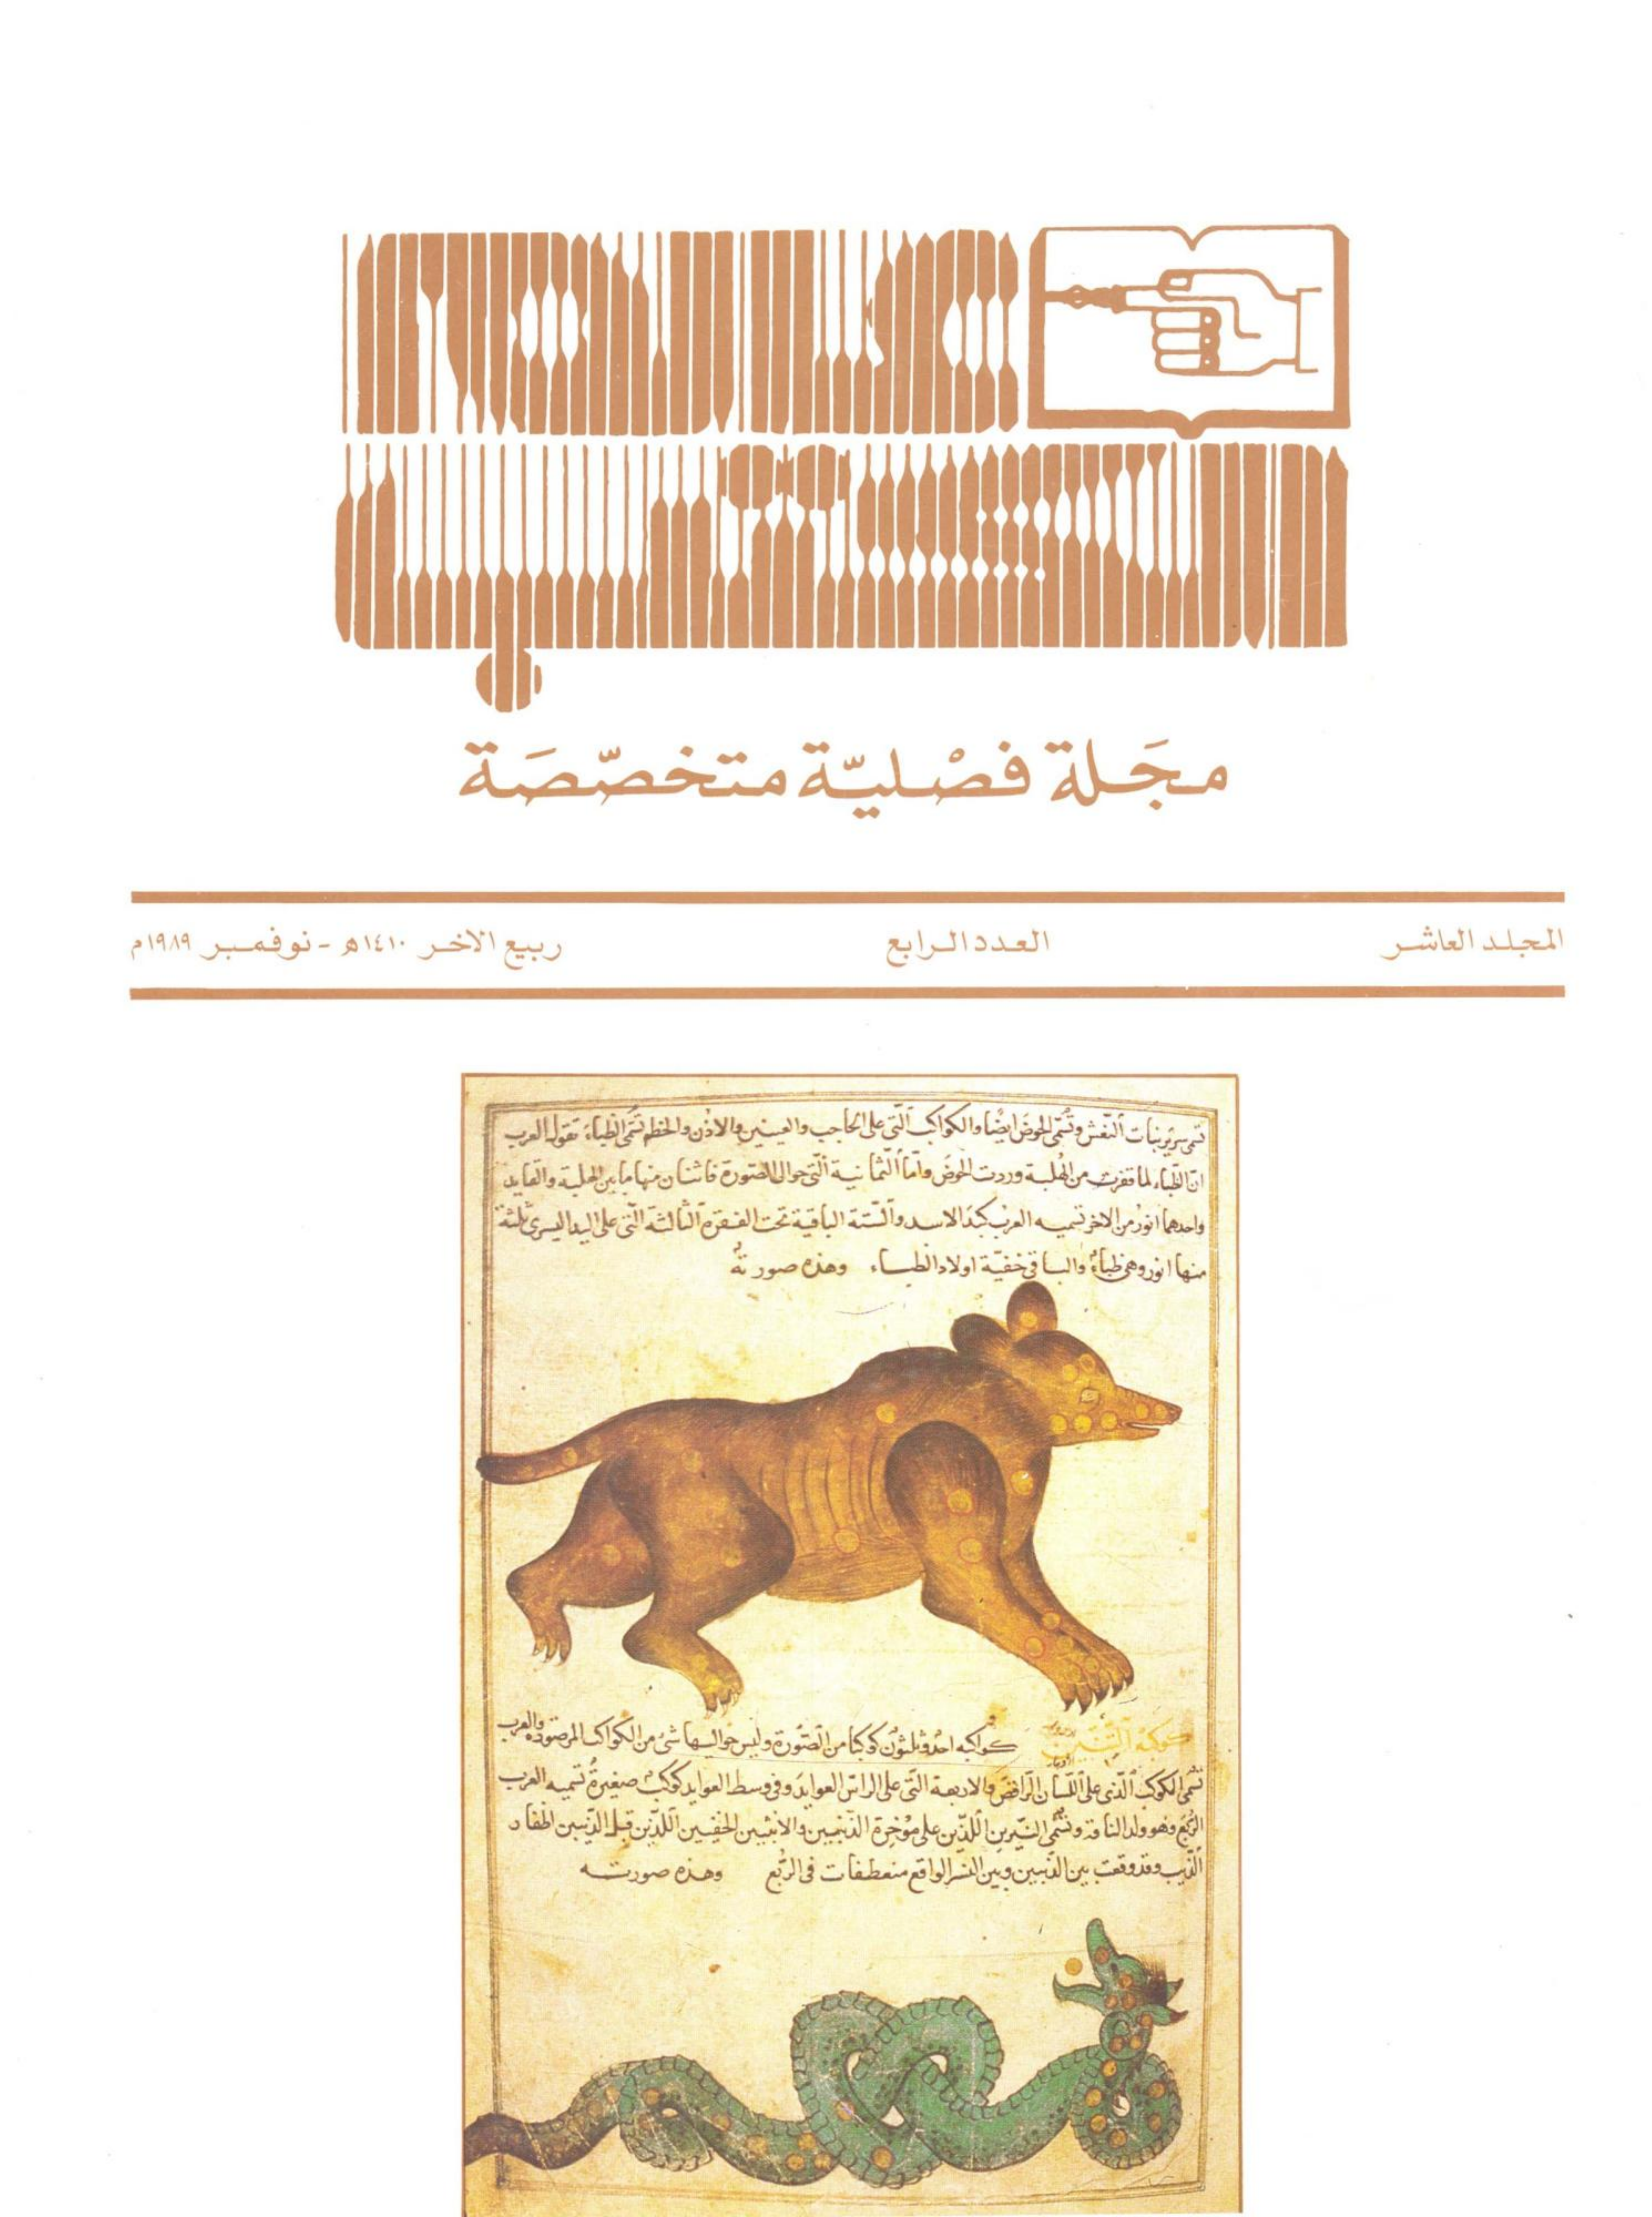 عالم
الكتب
مجَلة فصْليّة متخصّصَة
المجلد العاشر
العدد الرابع
ربيع الآخر ١٤١٠هـ - نوفمبر ١٩٨٩م
تسمى سرير بنات النعش وتسمى الحوض ايضا والكواكب التى على الحاجب والعينين والاذن والخطم تسمى الظباء تقول العرب
ان الظباء لما قفزت من الهلبة وردت الحوض واما الثمانية التى حوالى الصورة فاثنان منها ما بين الهلبة والقايد
واحدهما انور من الاخر تسميه العرب كبد الاسد والستة الباقية تحت الفقرة الثالثة التى على اليد اليسرى ثلثة
منها انور وهى ظباء والباقى خفية اولاد الظباء وهذه صورته
كوكبة التنين كواكبه احد وثلثون كوكبا من الصورة وليس حواليها شئ من الكواكب المرصودة والعرب
تسمى الكوكب الذى على اللسان الرافض والاربعة التى على الراس العوايد وفى وسط العوايد كوكب صغيرة تسميه العرب
الربع وهو ولد الناقة وتسمى النيرين اللذين على مؤخرة الذئبين والاثنين الخفيين اللذين قبل الذئبين اظفار
الذيب وقد وقعت بين الذئبين وبين النسر الواقع منعطفات فى الربع وهذه صورته